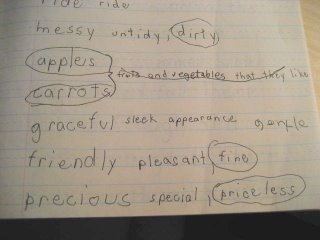 ride ride
messy untidy, dirty
apples
fruts and vegetables that they like
carrots
graceful sleek appearance gentle
friendly pleasant, fine
precious special, priceless